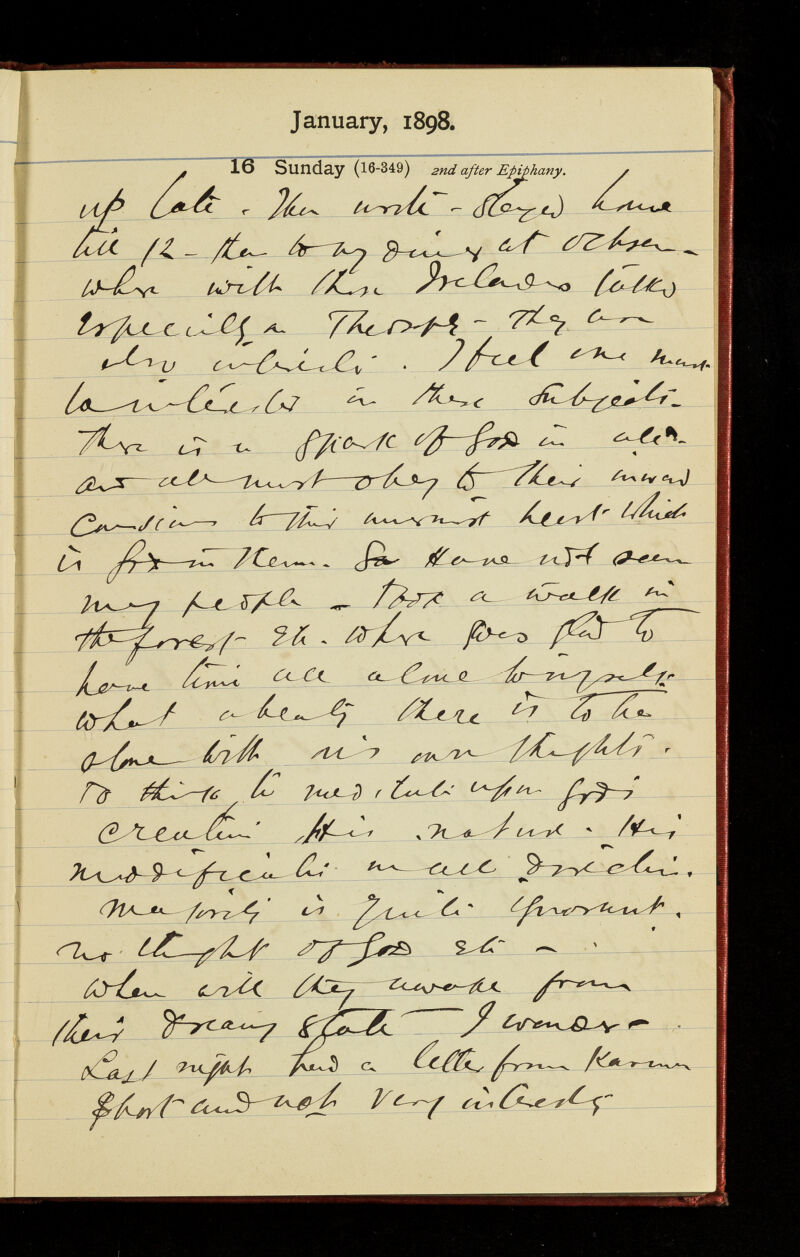 January, 1898.
16 Sunday (16-349) 2nd after Epiphany.
up late. Then write - stayed home
till 12 - then to my dinner at
where with those talked
especially on Theosophy - They are
also . I feel one must
be in these subjects -
There is a spark of God in all -
and all must obey to their inward
to their innermost heart which
is God in them. Have not seen
my people - took a walk in
the forest etc. where was glad to
have time all alone to myself.
What a beauty there is to be
alone with one's own thoughts.
To think, to meditate upon God's
creation His nature. His
in all .
Majority is quite ignorant.
no thought of God etc -
When will they awake from
their dreamy state - I wonder -
Last night had a letter from
short and not very interesting